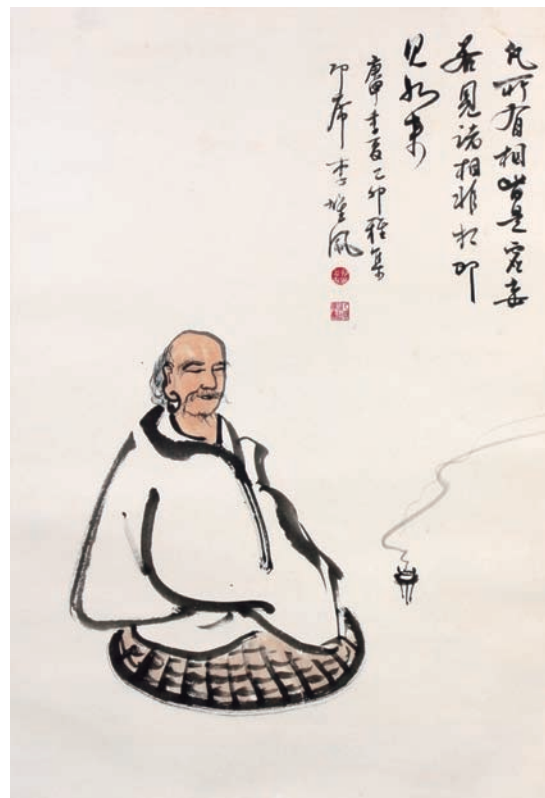 凡所有相皆是虛妄
若見諸相非相即
見如來
庚申季夏乙卯雅集
即席李風